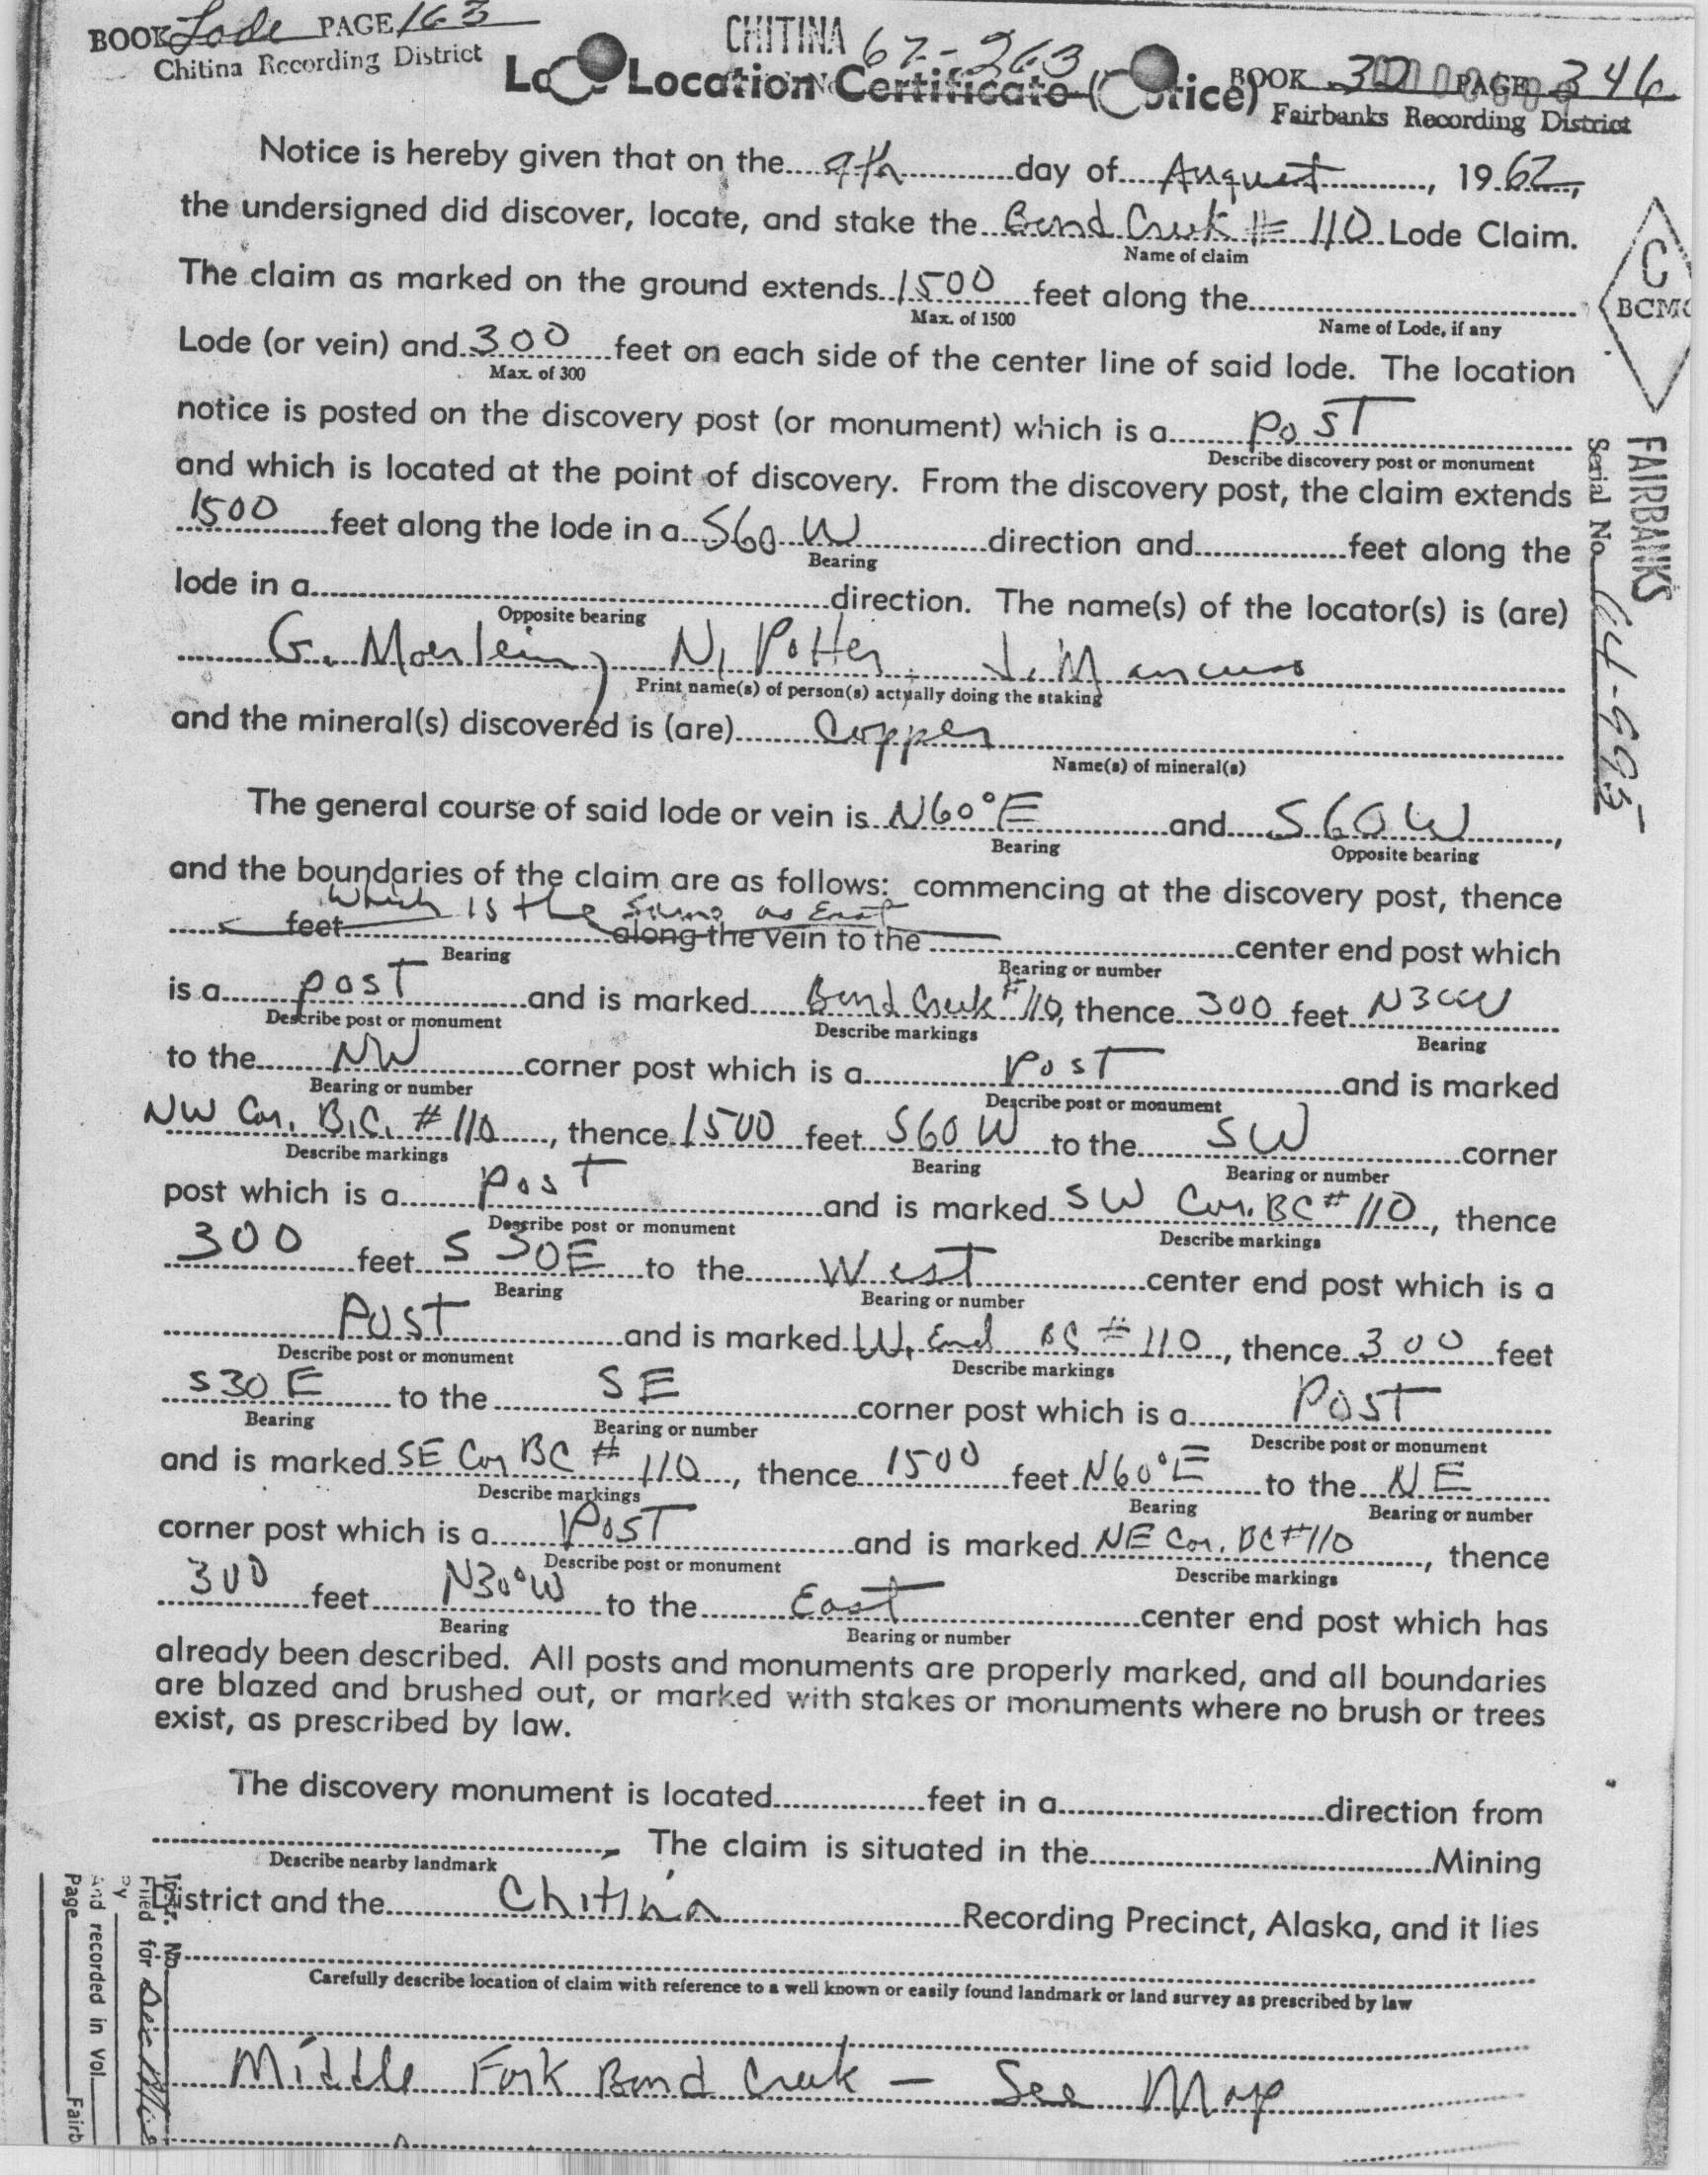 BOOK Lode PAGE 163
Chitina Recording District
CHITINA 62-263
BOOK 30 PAGE 346
Fairbanks Recording District
Location Certificate (Notice)
Notice is hereby given that on the 9th day of August, 1962,
the undersigned did discover, locate, and stake the Bond Creek # 110 Lode Claim.
Name of claim
The claim as marked on the ground extends 1500 feet along the
Max. of 1500 Name of Lode, if any
Lode (or vein) and 300 feet on each side of the center line of said lode. The location
Max. of 300
notice is posted on the discovery post (or monument) which is a post
Describe discovery post or monument
and which is located at the point of discovery. From the discovery post, the claim extends
1500 feet along the lode in a S60 W direction and feet along the
Bearing
lode in a direction. The name(s) of the locator(s) is (are)
Opposite bearing
G. Moerlein, N. Potter, J. Mancuso
Print name(s) of person(s) actually doing the staking
and the mineral(s) discovered is (are) Copper
Name(s) of mineral(s)
The general course of said lode or vein is N60°E and S60W,
Bearing Opposite bearing
and the boundaries of the claim are as follows: commencing at the discovery post, thence
which is the same as East
feet along the vein to the center end post which
Bearing Bearing or number
is a post and is marked Bond Creek #110, thence 300 feet N30W
Describe post or monument Describe markings Bearing
to the NW corner post which is a post and is marked
Bearing or number Describe post or monument
NW Cor. B.C. #110, thence 1500 feet S60W to the SW corner
Describe markings Bearing Bearing or number
post which is a post and is marked SW Cor. BC #110, thence
Describe post or monument Describe markings
300 feet S 30E to the West center end post which is a
Bearing Bearing or number
Post and is marked W. End BC #110, thence 300 feet
Describe post or monument Describe markings
S30E to the SE corner post which is a Post
Bearing Bearing or number Describe post or monument
and is marked SE Cor BC # 110, thence 1500 feet N60°E to the NE
Describe markings Bearing Bearing or number
corner post which is a Post and is marked NE Cor. BC #110, thence
Describe post or monument Describe markings
300 feet N30°W to the East center end post which has
Bearing Bearing or number
already been described. All posts and monuments are properly marked, and all boundaries
are blazed and brushed out, or marked with stakes or monuments where no brush or trees
exist, as prescribed by law.
The discovery monument is located feet in a direction from
. The claim is situated in the Mining
Describe nearby landmark
District and the Chitina Recording Precinct, Alaska, and it lies
Carefully describe location of claim with reference to a well known or easily found landmark or land survey as prescribed by law
Middle Fork Bond Creek - See Map
C
BCMC
FAIRBANKS
Serial No. 64-995
Instr. No.
Filed for
By
And recorded in Vol.
Page Fairb